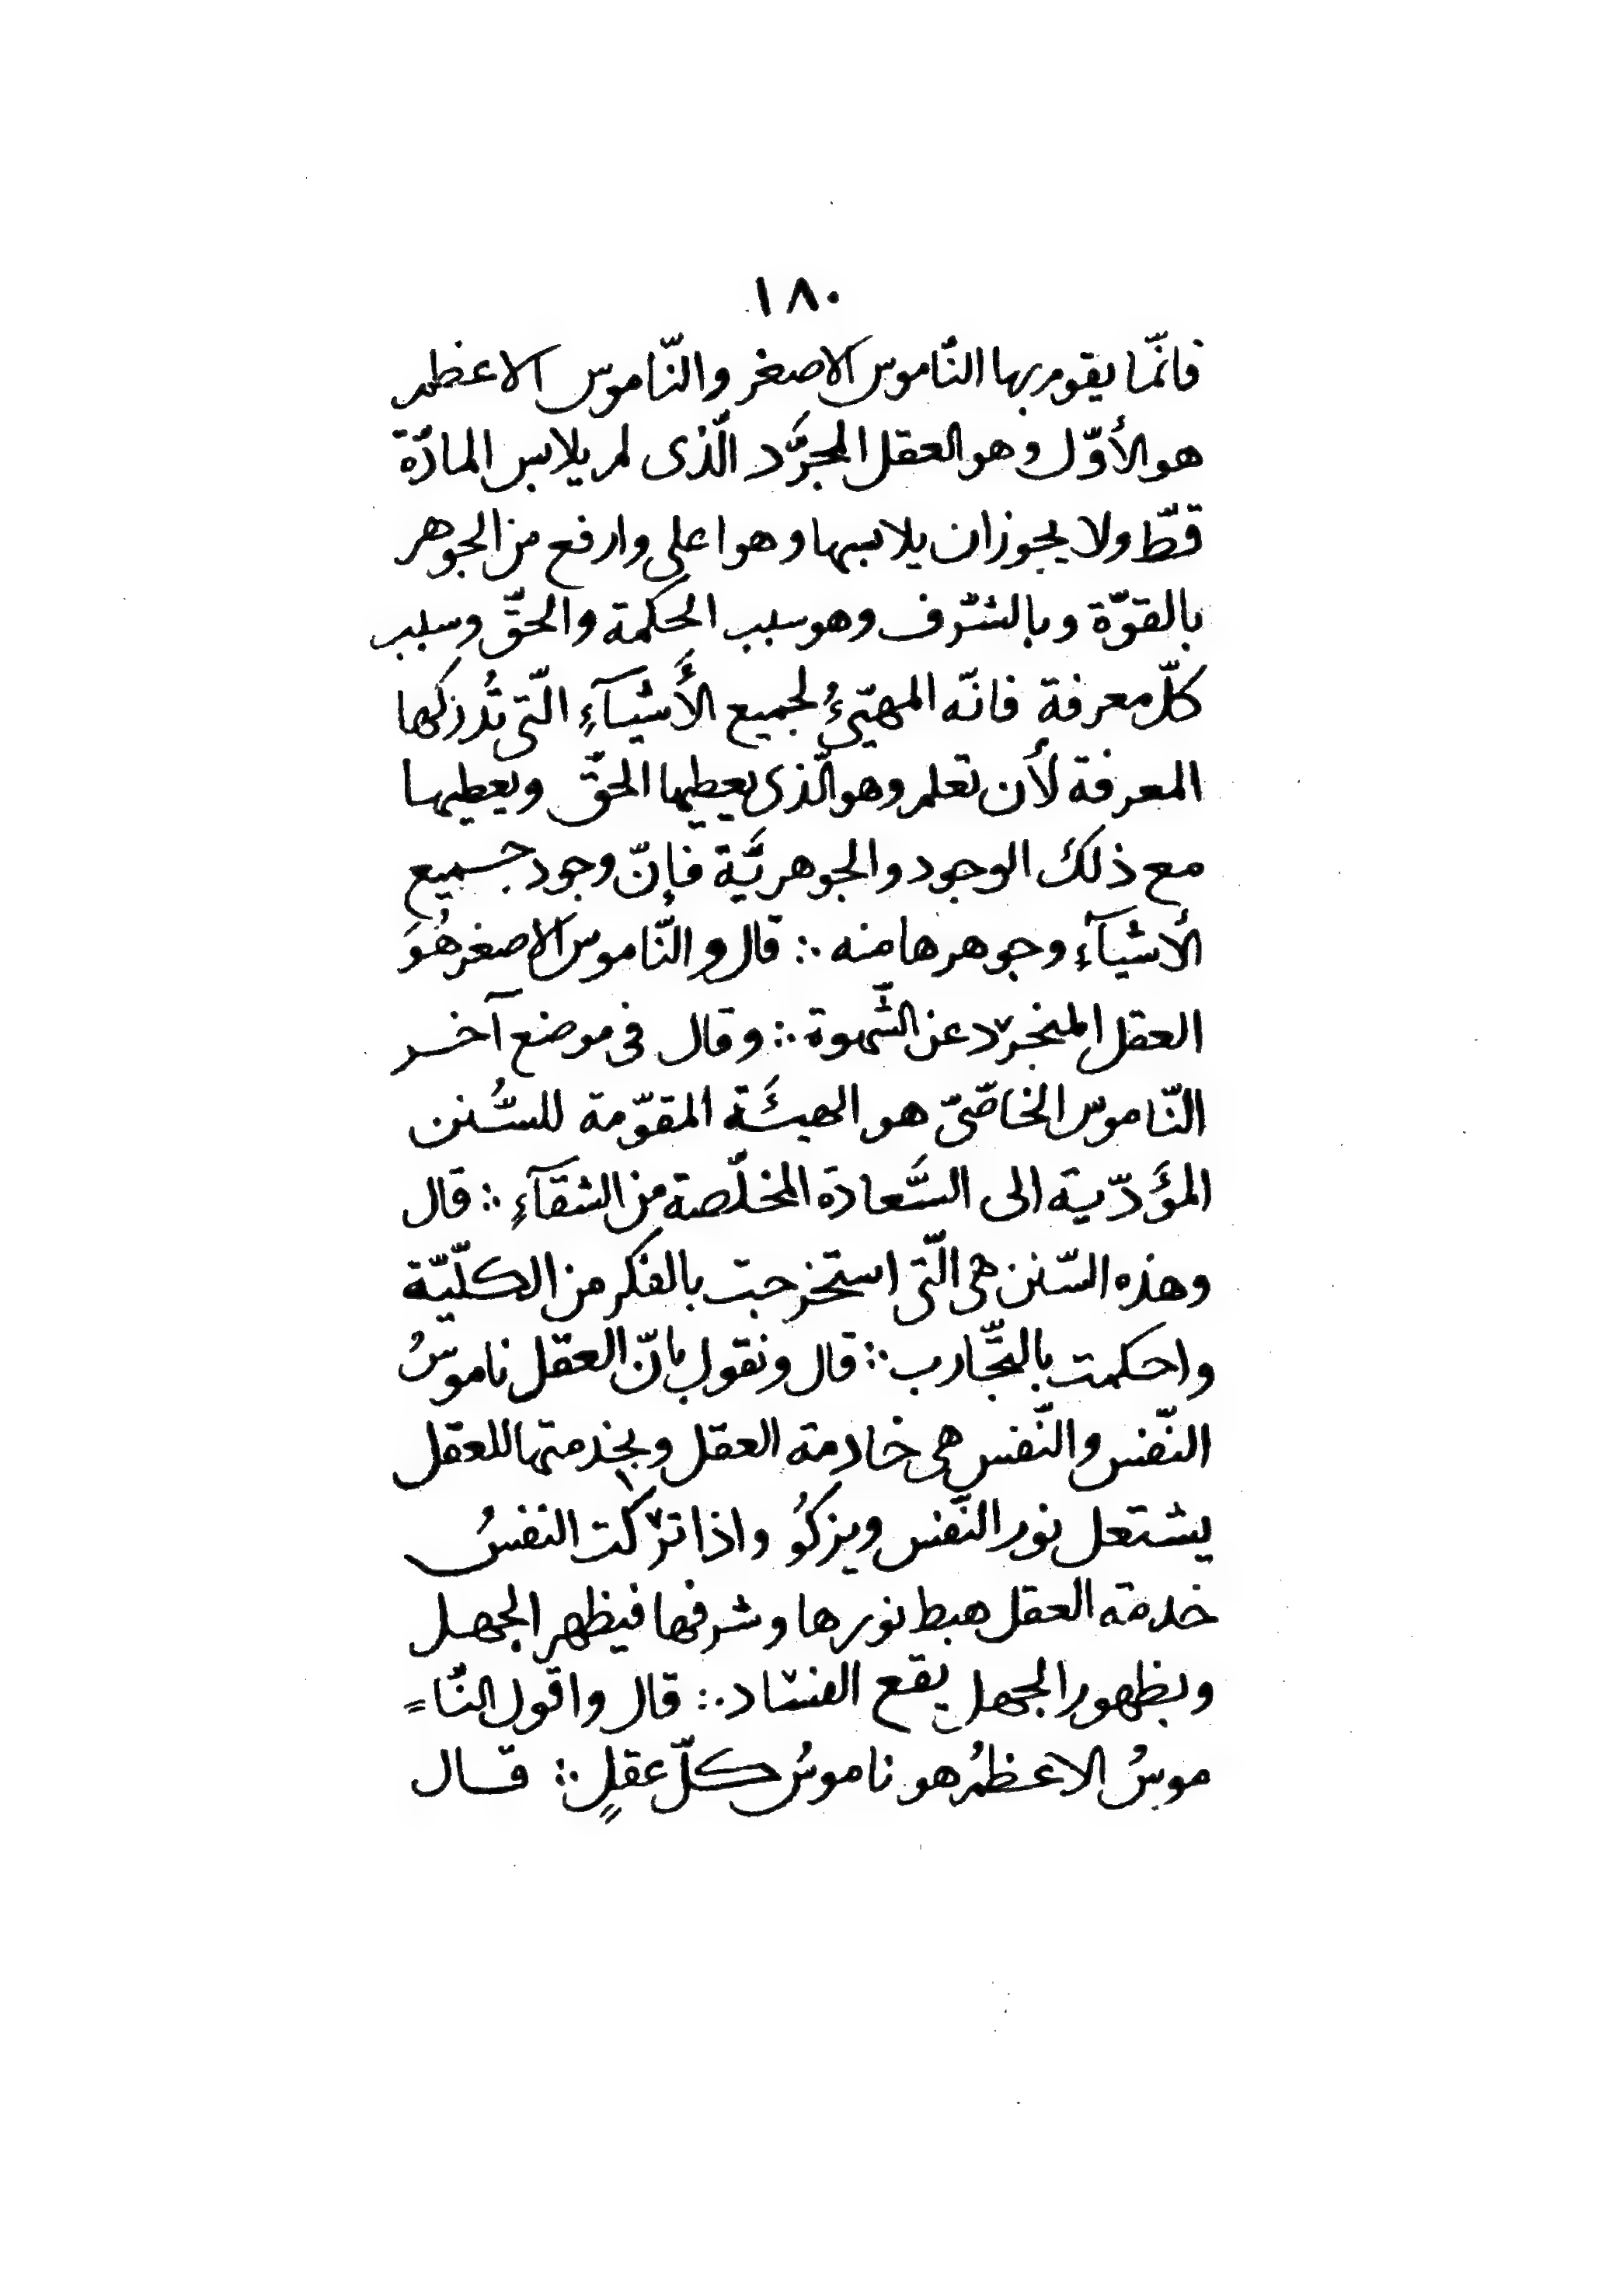 ١٨٠
فانّما يقوم بها النّاموس الاصغر والنّاموس الاعظم
هو الأوّل وهو العقل المجرَّد الّذى لم يلابس المادّة
قطّ ولا يجوز ان يلابسها وهو اعلى وارفع من الجوهر
بالقوّة وبالشّرف وهو سبب الحكمة والحقّ وسبب
كلّ معرفة فانّه المهيّئُ لجميع الأَشيآءِ الّتى تُدركها
المعرفة لأن تعلم وهو الّذى يعطيها الحقّ ويعطيها
مع ذلك الوجود والجوهريَّة فإنّ وجود جميع
الأشيآءِ وجوهرها منه ∴ قال والنّاموس الاصغر هُوَ
العقل المنجرد عن الشَّهوة ∴ وقال فى موضع آخر
النّاموس الخاصّىّ هو الهيئَة المقوّمة للسُّنن
المؤَدّية الى السَّعادة المخلّصة من الشقآءِ ∴ قال
وهذه السّنن هى الّتى استخرجت بالفكر من الكلّيّة
واحكمت بالتّجارب ∴ قال ونقول بانّ العقل ناموسُ
النّفس والنّفس هى خادمة العقل وبخدمتها للعقل
يشتعل نور النّفس ويزكُو واذا تركت النفسُ
خدمة العقل هبط نورها وشرفها فيظهر الجهل
وبظهور الجهل يقع الفساد ∴ قال واقول النّا=
موسُ الاعظمُ هو ناموسُ كلّ عقلٍ ∴ قال